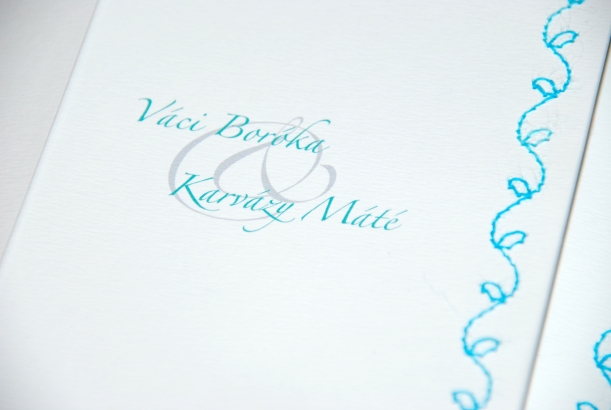 Váci Boróka
&
Karvázy Máté